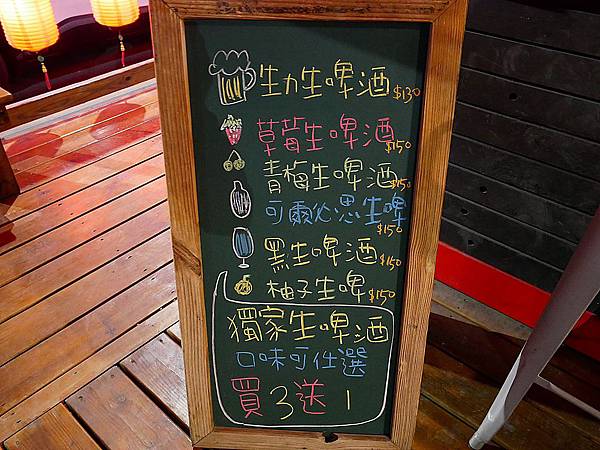 生力生啤酒 $130
草莓生啤酒 $150
青梅生啤酒 $150
可爾必思生啤 $150
黑生啤酒 $150
柚子生啤 $150
獨家生啤酒
口味可任選
買3送1